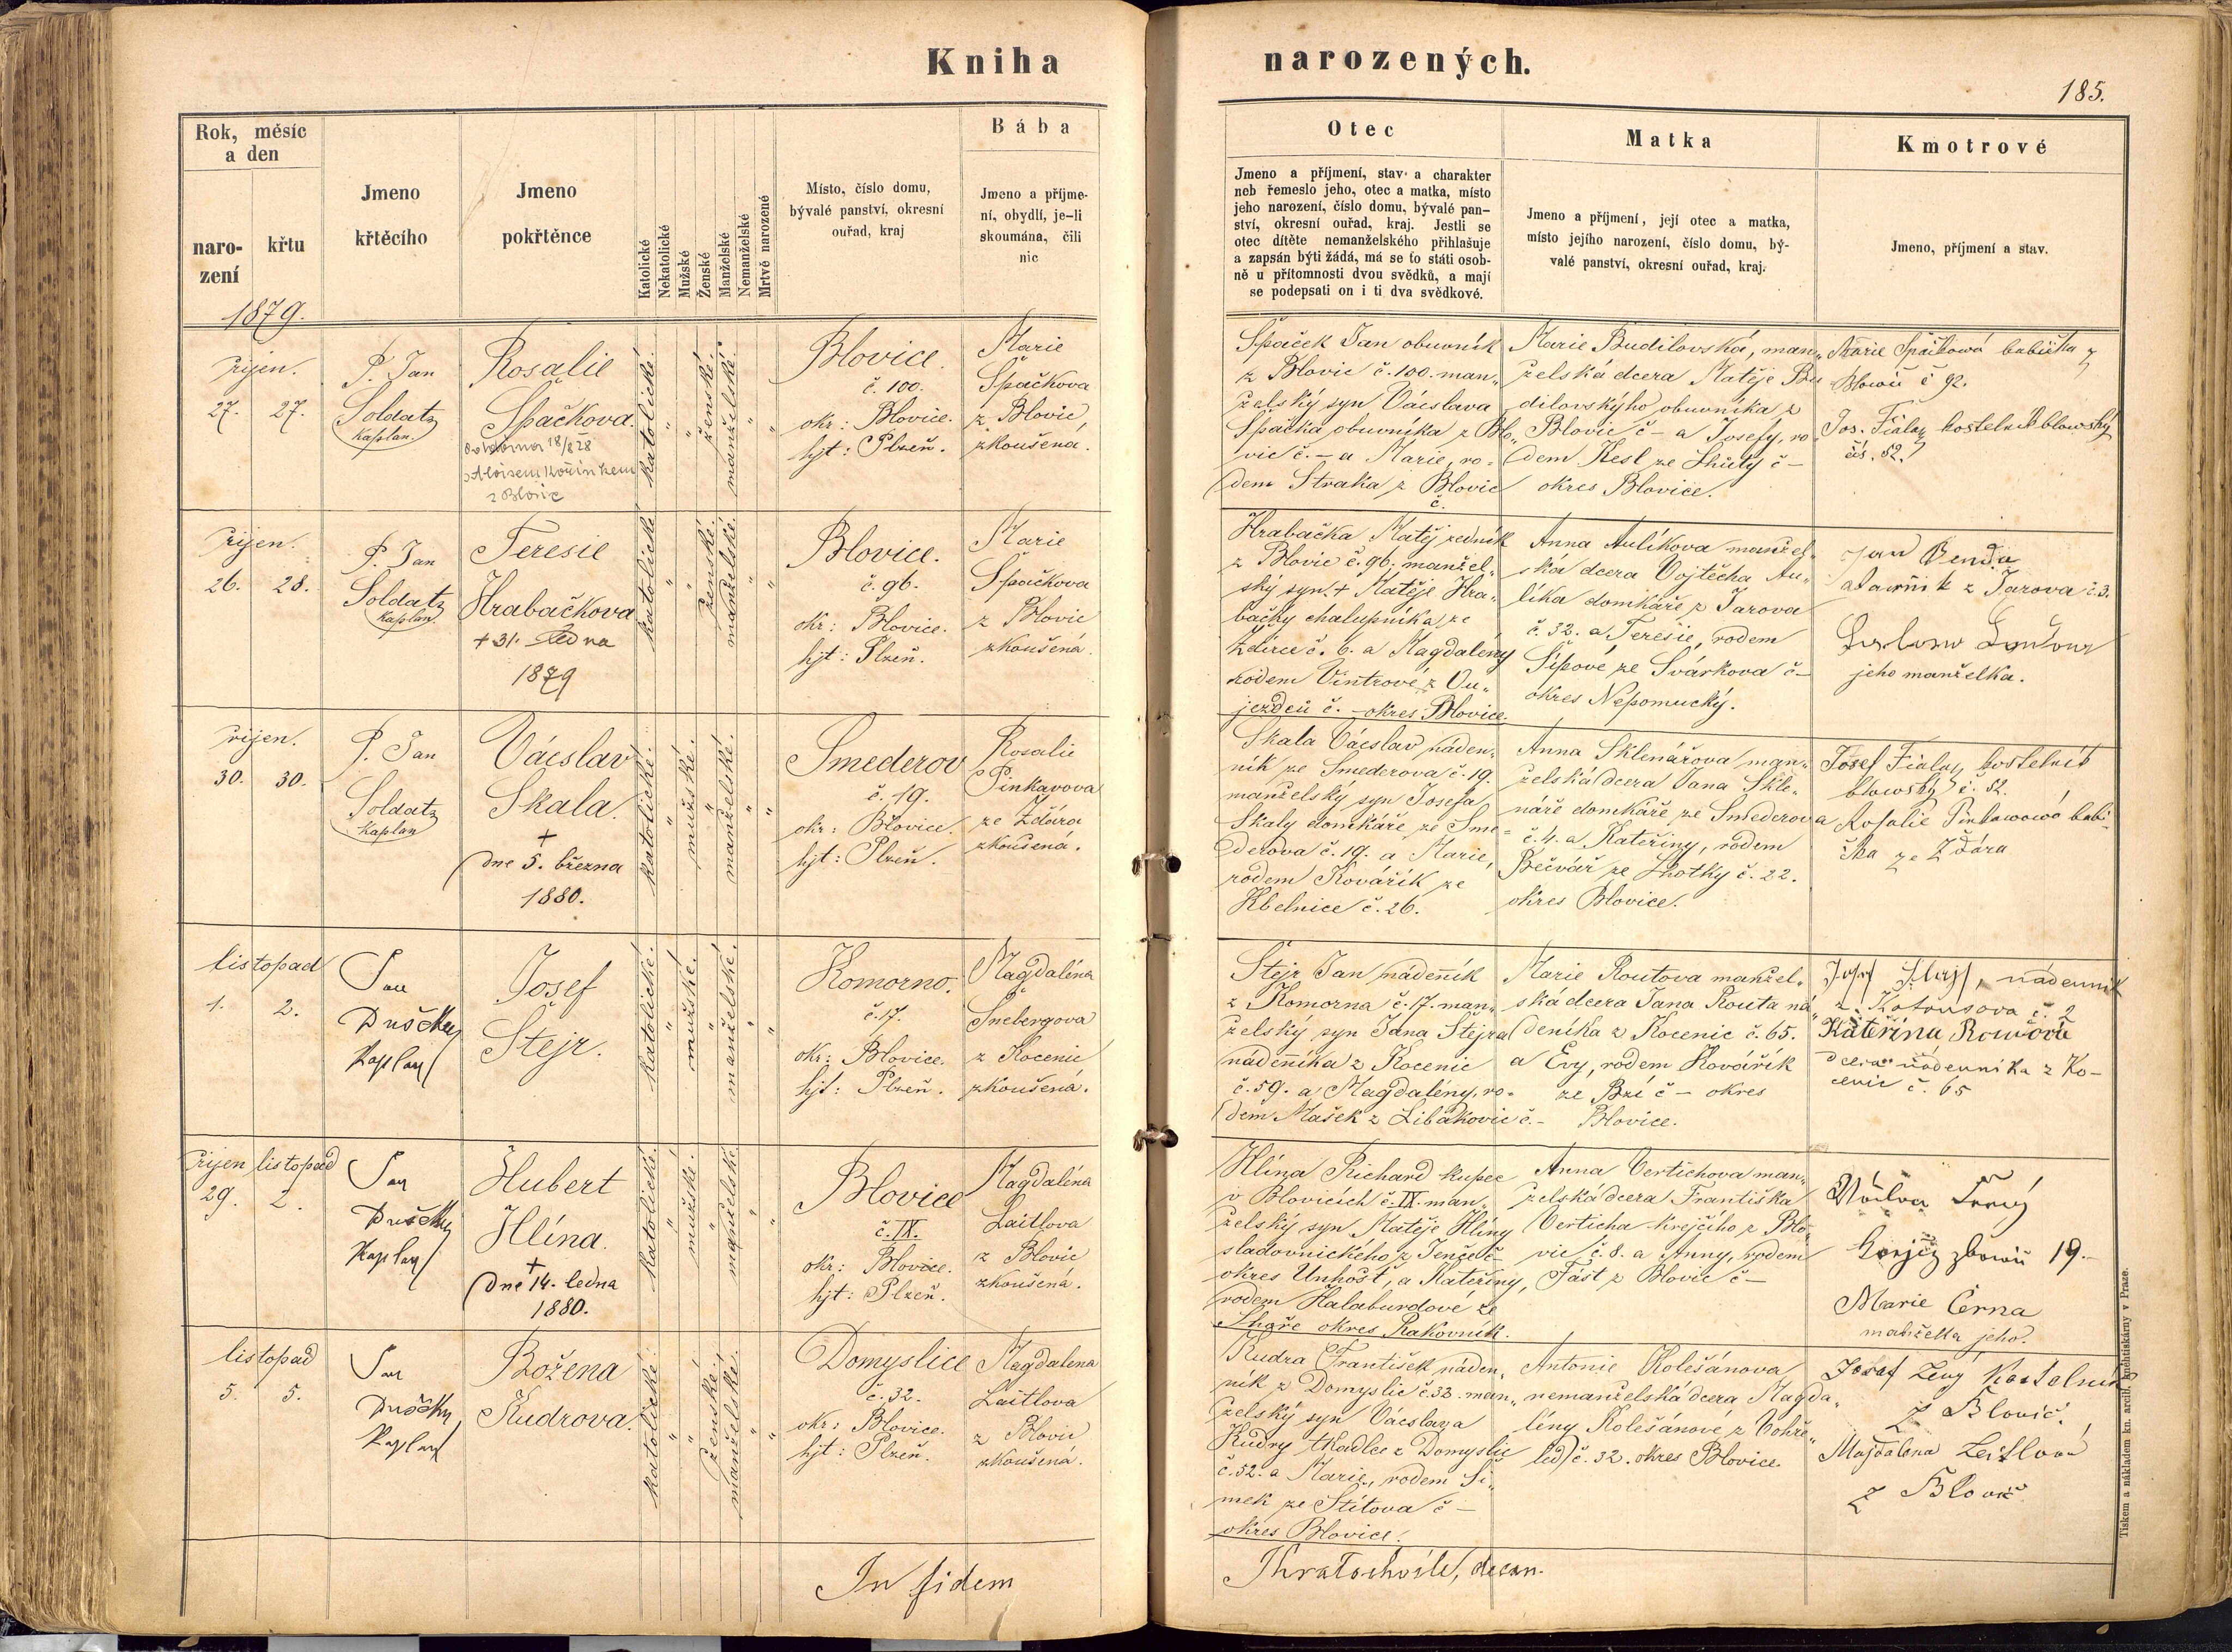 Kniha
narozených.
185.
Rok, měsíc
a den
naro-
zení
křtu
Jmeno
křtěcího
Jmeno
pokřtěnce
Katolické
Nekatolické
Mužské
Ženské
Manželské
Nemanželské
Mrtvě narozené
Místo, číslo domu,
bývalé panství, okresní
ouřad, kraj
Bába
Jmeno a příjme-
ní, obydlí, je-li
skoumána, čili
nic
Otec
Jmeno a příjmení, stav a charakter
neb řemeslo jeho, otec a matka, místo
jeho narození, číslo domu, bývalé pan-
ství, okresní ouřad, kraj. Jestli se
otec dítěte nemanželského přihlašuje
a zapsán býti žádá, má se to státi osob-
ně u přítomnosti dvou svědků, a mají
se podepsati on i ti dva svědkové.
Matka
Jmeno a příjmení, její otec a matka,
místo jejího narození, číslo domu, bý-
valé panství, okresní ouřad, kraj.
Kmotrové
Jmeno, příjmení a stav.
1879.
říjen.
27. 27.
P. Jan
Soldatz
kaplan.
Rosalie
Špačkova.
18/8 28
s Aloisem Kořínkem
z Blovic
katolické.
ženské.
manželské.
Blovice.
č. 100.
okr: Blovice.
hjt: Plzeň.
Marie
Špačkova
z Blovic,
zkoušená.
Špaček Jan obuvník
z Blovic č. 100. man„
želský syn Vácslava
Špačka obuvníka z Blo„
vic č. – a Marie, ro=
dem Straka z Blovic
č.
Marie Budilovská, man„
želská dcera Matěje Bu
dilovskýho obuvníka z
Blovic č – a Josefy, ro
dem Kesl ze Lhůty č –
okres Blovice.
Marie Špačková babička z
Blowic č 92.
Jos. Fialay kostelník blowský
čís. 52.
říjen.
26. 28.
P. Jan
Soldatz
kaplan
Teresie
Hrabačkova
+ 31. ledna
1879
katolické
ženské.
manželské.
Blovice.
č. 96.
okr: Blovice.
hjt: Plzeň.
Marie
Špačkova
z Blovic
zkoušená.
Hrabačka Matěj zedník
z Blovic č. 96. manžel„
ský syn + Matěje Hra„
bačky chalupníka, ze
Ždírce č. 6. a Magdalény
rodem Vintrové z Ou„
jezdců č. – okres Blovice.
Anna Aulíkova manžel„
ská dcera Vojtěcha Au„
líka domkáře z Jarova
č. 32. a Teresie, rodem
Šípové ze Svárkova č –
okres Nepomucký.
Jan Benda
z Jarova č. 3.
jeho manželka.
říjen.
30. 30.
P. Jan
Soldatz
kaplan
Vácslav
Skala.
+
dne 5. března
1880.
katolické.
mužské.
manželské.
Smederov
č. 19.
okr: Blovice.
hjt: Plzeň.
Rosalie
Pinkavova
ze Ždára
zkoušená.
Skala Vácslav náden„
ník ze Smederova č. 19.
manželský syn Josefa
Skaly domkáře ze Sme=
derova č. 19. a Marie,
rodem Kovářík ze
Kbelnice č. 26.
Anna Sklenářova man„
želská dcera Jana Skle„
náře domkáře ze Smederova
č. 4. a Kateřiny, rodem
Bečvář ze Lhotky č. 22.
okres Blovice.
Josef Fialay, kostelník
blowský č. 52.
Rosalie Pinkawowá babi-
čka ze Ždára
listopad
1. 2.
Jan
Dušek
Kaplan
Josef
Štejr.
katolické.
mužské.
manželské.
Komorno.
č. 17.
okr: Blovice.
hjt: Plzeň.
Magdaléna
Šnebergova
z Kocenic
zkoušená.
Štejr Jan nádeňník
z Komorna č. 17. man„
želský syn Jana Štejra
nádeňníka z Kocenic
č. 59. a Magdalény, ro=
dem Mašek z Libákovic č. –
Marie Routova manžel„
ská dcera Jana Routa ná„
deníka z Kocenic č. 65.
a Evy, rodem Kovářík
ze Bzí č – okres
Blovice.
Josef Štejr, nádenník
z Kotousova č. 2
Kateřina Routová
dcera nádenníka z Ko-
cenic č. 65
říjen listopad
29. 2.
Jan
Dušek
Kaplan
Hubert
Hlína.
+
dne 14. ledna
1880.
katolické.
mužské.
manželské
Blovice
č. IX.
okr: Blovice.
hjt: Plzeň.
Magdaléna
Laitlova
z Blovic
zkoušená.
Hlína Richard kupec
v Blovicích č. IX. man„
želský syn Matěje Hlíny
sladovnického z Jenče č –
okres Unhošť, a Kateřiny,
rodem Halaburdové ze
Lhoře okres Rakovník.
Anna Vertichova man„
želská dcera Františka
Verticha krejčího z Blo„
vic č. 8. a Anny, rodem
Tást z Blovic č –
19.
Marie Černa
manželka jeho.
listopad
5. 5.
Jan
Dušek
Kaplan
Božena
Kudrova.
katolické.
ženské.
manželské.
Domyslice
č. 32.
okr: Blovice.
hjt: Plzeň.
Magdalena
Laitlova
z Blovic
zkoušená.
Kudra František náden„
ník z Domyslic č. 32. man„
želský syn Vácslava
Kudry tkadlce z Domyslic
č. 52. a Marie, rodem Ši„
mek ze Štítova č –
okres Blovice.
Antonie Kolešánova
nemanželská dcera Magda„
lény Kolešánové z Vohře„
led č. 32. okres Blovice.
Josef kostelník
z Blovic.
Majdalena Leitlová
z Blovic
In fidem
Kratochvíle, decan.
Tiskem a nákladem kn. arcib. knihtiskárny v Praze.